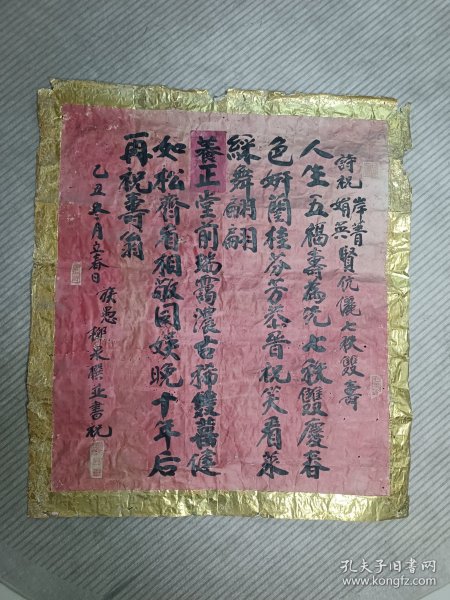 詩祝岸普婧英賢伉儷七秩雙壽
人生五福壽為先七秩雙慶春
色妍蘭桂芬芳恭晉祝笑看萊
綵舞翩翩
養正堂前瑞靄濃古稀健
如松齊眉相敬同娛晚十年后
再祝壽翁
乙丑年月立春日 族愚 柳泉撰並書祝
孔夫子旧书网
www.kongfz.com